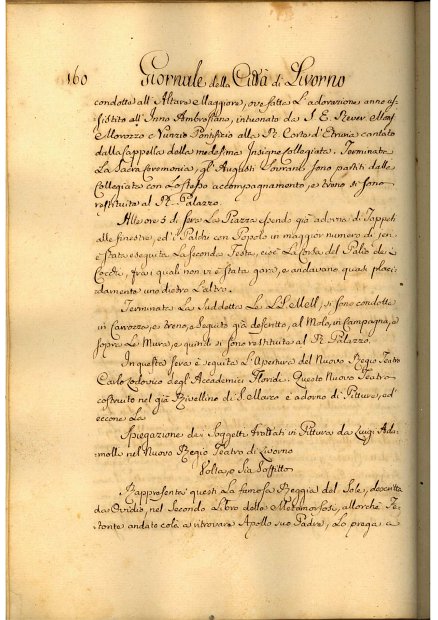 160 Giornale della Città di Livorno
condotte all'Altare Maggiore, ove fatta l'adorazione anno as-
sistito all'Inno Ambrosiano, intuonato da S. E. Rever. Mons.
Morozzo e Nunzio Pontifizio alla R. Corte d'Etruria cantato
dalla Cappella della medesima Insigne Collegiata. Terminata
La Sacra Ceremonia, gl'Augusti Sovrani sono partiti dalla
Collegiata con Lo stesso accompagnamento, e treno si sono
restituita al R. Palazzo.
Alle ore 5 di sera La Piazza essendo già adorna di Tappeti
alle finestre, ed i Palchi con Popolo in maggior numero di jeri
è stata eseguita La seconda Festa, cioè La Corsa del Palio dei
Cocchi, fra i quali non vi è stata gara, e andavano quasi placi-
damente uno dietro L'altro.
Terminata La suddetta Le LL. MM. si sono condotte
in Carrozza, e treno, e seguito già descritto, al Molo, in Campagna, e
sopra Le Mura, e quindi si sono restituite al R. Palazzo.
In questa sera è seguita L'Apertura del Nuovo Regio Teatro
Carlo Lodovico degl'Accademici Floridi. Questo Nuovo Teatro
costruito nel già Rivellino di S. Marco è adorno di Pitture, ed
eccone La
Spiegazione dei Soggetti trattati in Pittura da Luigi Ade-
molli nel Nuovo Regio Teatro di Livorno
Volta, o sia Soffitto
Rappresenta questi La famosa Reggia del Sole, descritta
da Ovidio, nel secondo Libro delle Metamorfosi, allorchè Fe-
tonte andato colà a ritrovare Apollo suo Padre, Lo prega a